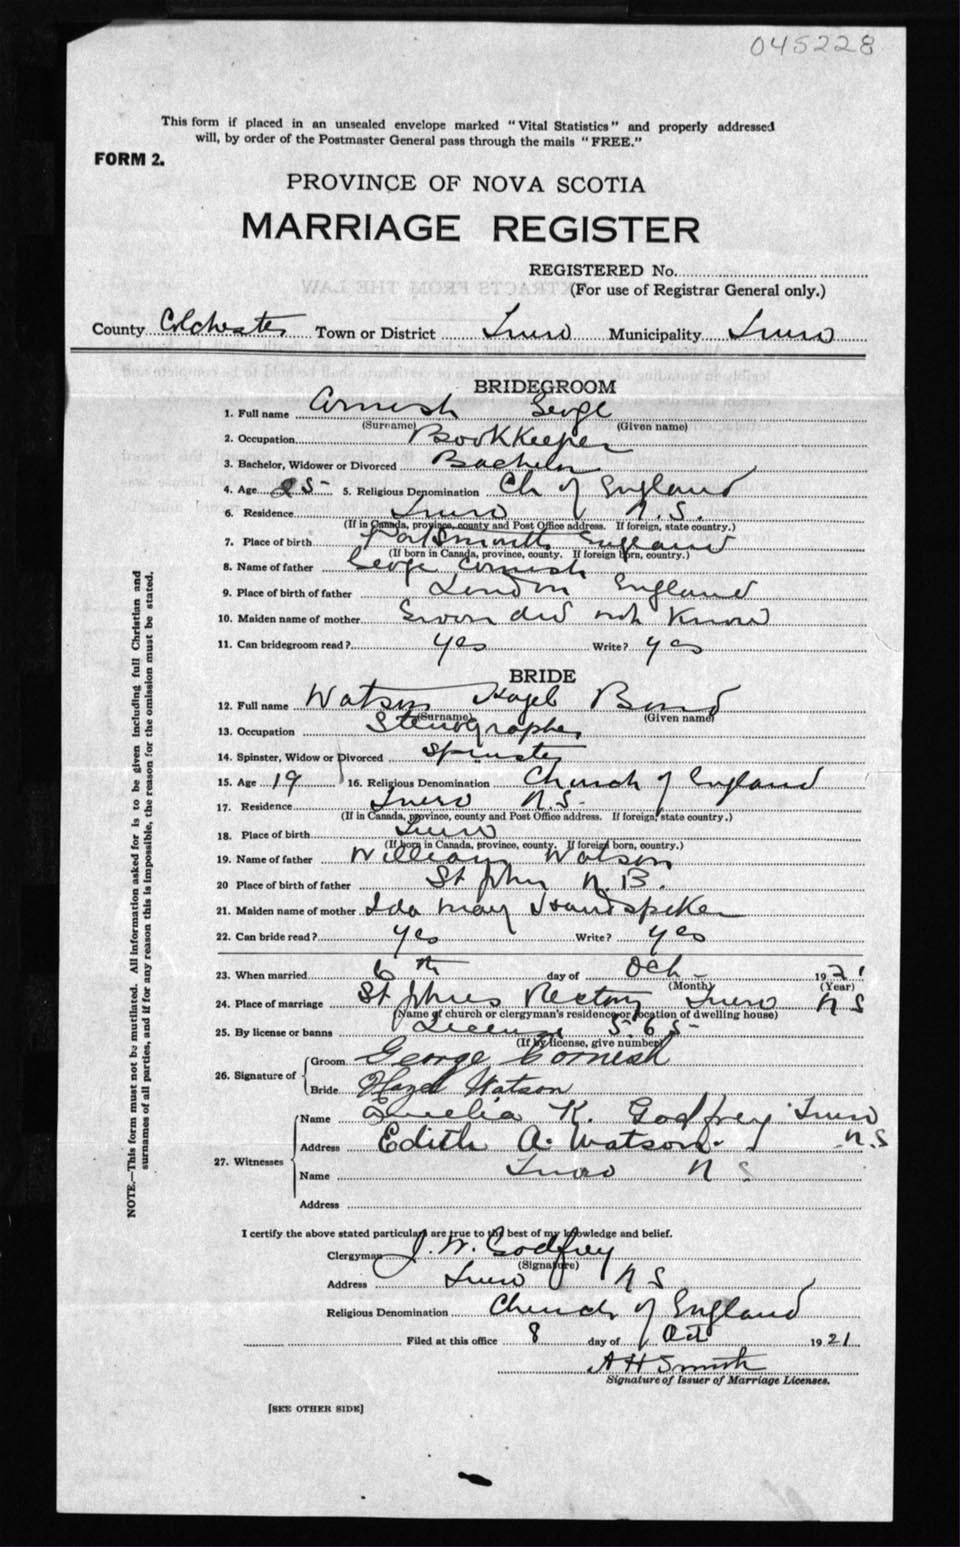 045228
This form if placed in an unsealed envelope marked "Vital Statistics" and properly addressed
will, by order of the Postmaster General pass through the mails "FREE."
FORM 2.
PROVINCE OF NOVA SCOTIA
MARRIAGE REGISTER
REGISTERED No.
(For use of Registrar General only.)
County Colchester Town or District Truro Municipality Truro
BRIDEGROOM
1. Full name Cornish George
(Surname) (Given name)
2. Occupation BookKeeper
3. Bachelor, Widower or Divorced Bachelor
4. Age 25 5. Religious Denomination Ch of England
6. Residence Truro N.S.
(If in Canada, province, county and Post Office address. If foreign, state country.)
7. Place of birth Portsmouth England
(If born in Canada, province, county. If foreign born, country.)
8. Name of father George Cornish
9. Place of birth of father London England
10. Maiden name of mother Groom did not Know
11. Can bridegroom read? yes Write? yes
BRIDE
12. Full name Watson Hazel Bond
(Surname) (Given name)
13. Occupation Stenographer
14. Spinster, Widow or Divorced Spinster
15. Age 19 16. Religious Denomination Church of England
17. Residence Truro N.S.
(If in Canada, province, county and Post Office address. If foreign, state country.)
18. Place of birth Truro
(If born in Canada, province, county. If foreign born, country.)
19. Name of father William Watson
20 Place of birth of father St John N.B.
21. Maiden name of mother Ida May Handspiker
22. Can bride read? yes Write? yes
23. When married 6th day of Oct 1921
(Month) (Year)
24. Place of marriage St Johns Rectory Truro N S
(Name of church or clergyman's residence or location of dwelling house)
25. By license or banns License 565
(If by license, give number)
26. Signature of Groom George Cornish
Bride Hazel Watson
27. Witnesses
Name K. Godfrey Truro
Address Edith A. Watson. N.S
Name Truro N S
Address
I certify the above stated particulars are true to the best of my knowledge and belief.
Clergyman J. W. Godfrey
(Signature)
Address Truro N S
Religious Denomination Church of England
Filed at this office 8 day of Oct 1921
A H Smith
Signature of Issuer of Marriage Licenses.
[SEE OTHER SIDE]
NOTE.—This form must not be mutilated. All information asked for is to be given including full Christian and
surnames of all parties, and if for any reason this is impossible, the reason for the omission must be stated.